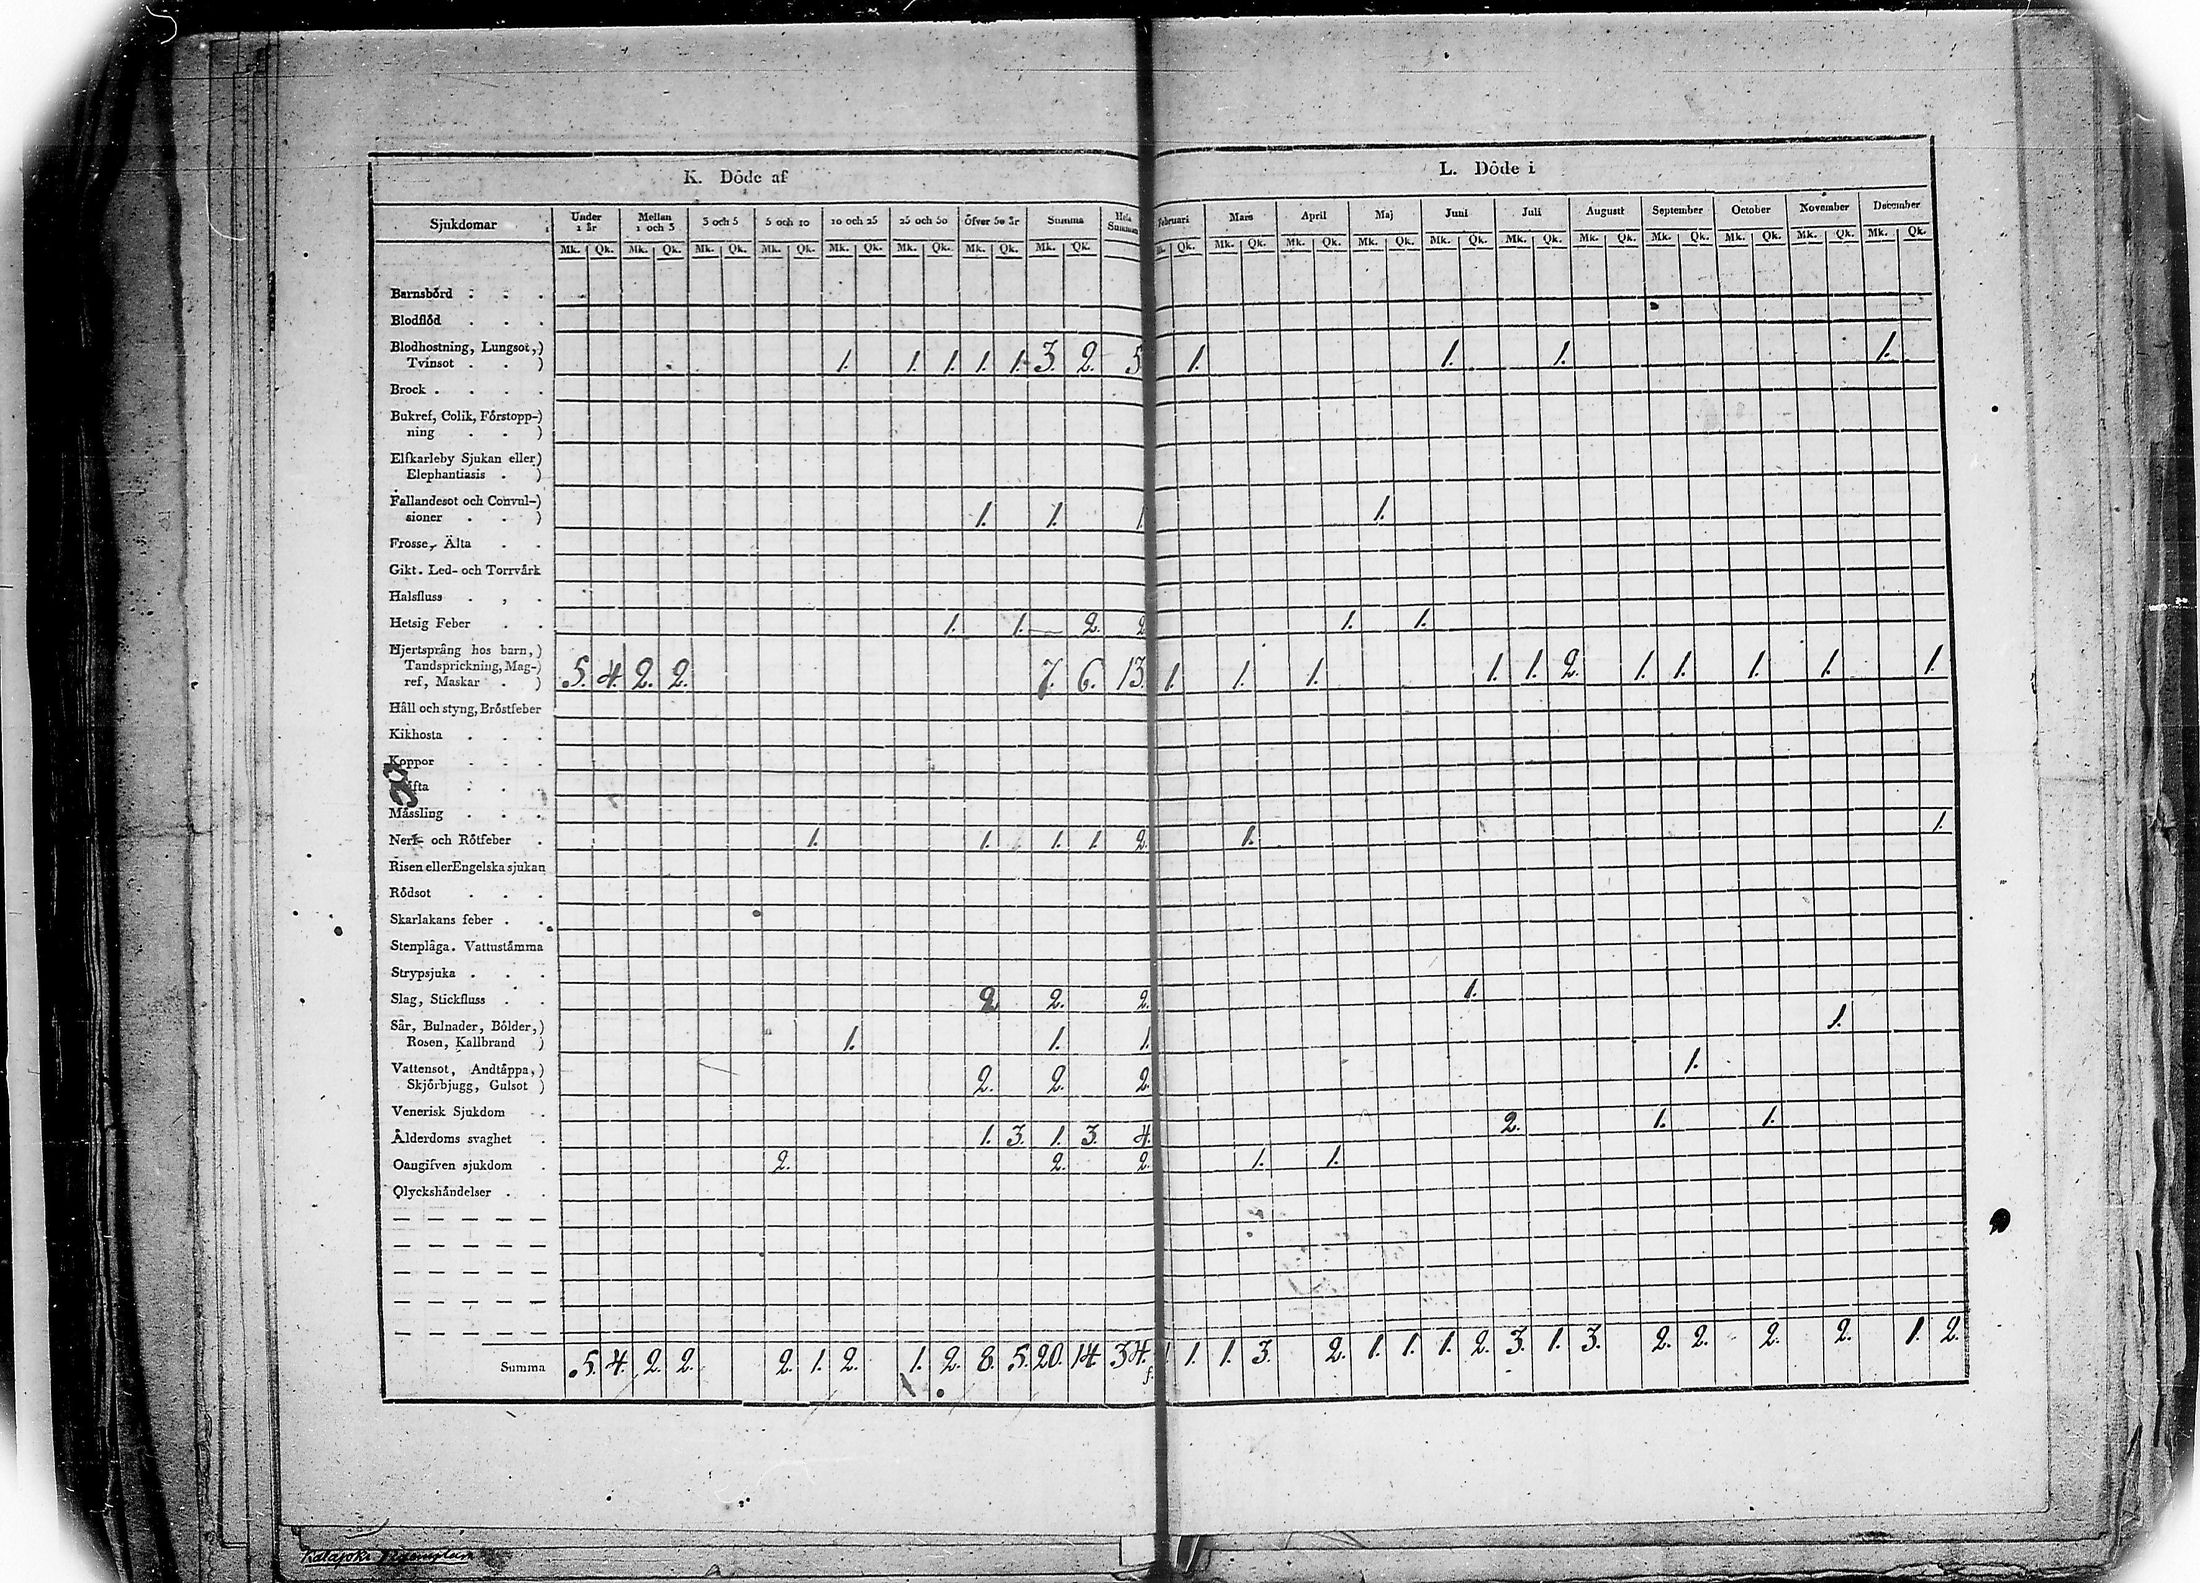 K. Dôde af
L. Dôde i
Sjukdomar Under 1 år Mellan 1 och 3 3 och 5 5 och 10 10 och 25 25 och 50 Öfver 50 år Summa Hela Summan Februari Mars April Maj Juni Juli Augusti September October November December
Mk. Qk. Mk. Qk. Mk. Qk. Mk. Qk. Mk. Qk. Mk. Qk. Mk. Qk. Mk. Qk. Mk. Qk. Mk. Qk. Mk. Qk. Mk. Qk. Mk. Qk. Mk. Qk. Mk. Qk. Mk. Qk. Mk. Qk. Mk. Qk. Mk. Qk.
Barnsbörd . . .
Blodflöd . . .
Blodhostning, Lungsot,)
Tvinsot . . ) 1. 1. 1. 1. 1. 3. 2. 5 1. 1. 1. 1.
Brock . . . .
Bukref, Colik, Förstopp-)
ning . . )
Elfkarleby Sjukan eller)
Elephantiasis . )
Fallandesot och Convul-)
sioner . . ) 1. 1. 1. 1.
Frosse, Älta . .
Gikt. Led- och Torrvårk
Halsfluss . , .
Hetsig Feber . . 1. 1. — 2. 2 1. 1.
Hjertsprång hos barn,)
Tandsprickning, Mag-)
ref, Maskar . ) 5. 4. 2. 2. 7. 6. 13. 1. 1. 1. 1. 1. 2. 1. 1. 1. 1. 1.
Håll och styng, Bröstfeber
Kikhosta . . .
Koppor . . .
Måssling . . .
Nerf- och Rötfeber . 1. 1. 1. 1. 2. 1. 1.
Risen eller Engelska sjukan
Rödsot . . .
Skarlakans feber . .
Stenplåga. Vattustämma
Strypsjuka . . .
Slag, Stickfluss . . 2. 2. 2. 1.
1.
Sår, Bulnader, Bölder,)
Rosen, Kallbrand ) 1. 1. 1.
1.
Vattensot, Andtåppa,)
Skjörbjugg, Gulsot ) 2. 2. 2.
Venerisk Sjukdom . 2. 1. 1.
Ålderdoms svaghet . 1. 3. 1. 3. 4.
Oangifven sjukdom . 2. 2. 2. 1. 1.
Olyckshändelser . .
Summa 5. 4. 2. 2. 2. 1. 2. 1. 2. 8. 5. 20. 14 34. 1. 1. 1. 3. 2. 1. 1. 1. 2. 3. 1. 3. 2. 2. 2. 2. 1. 2.